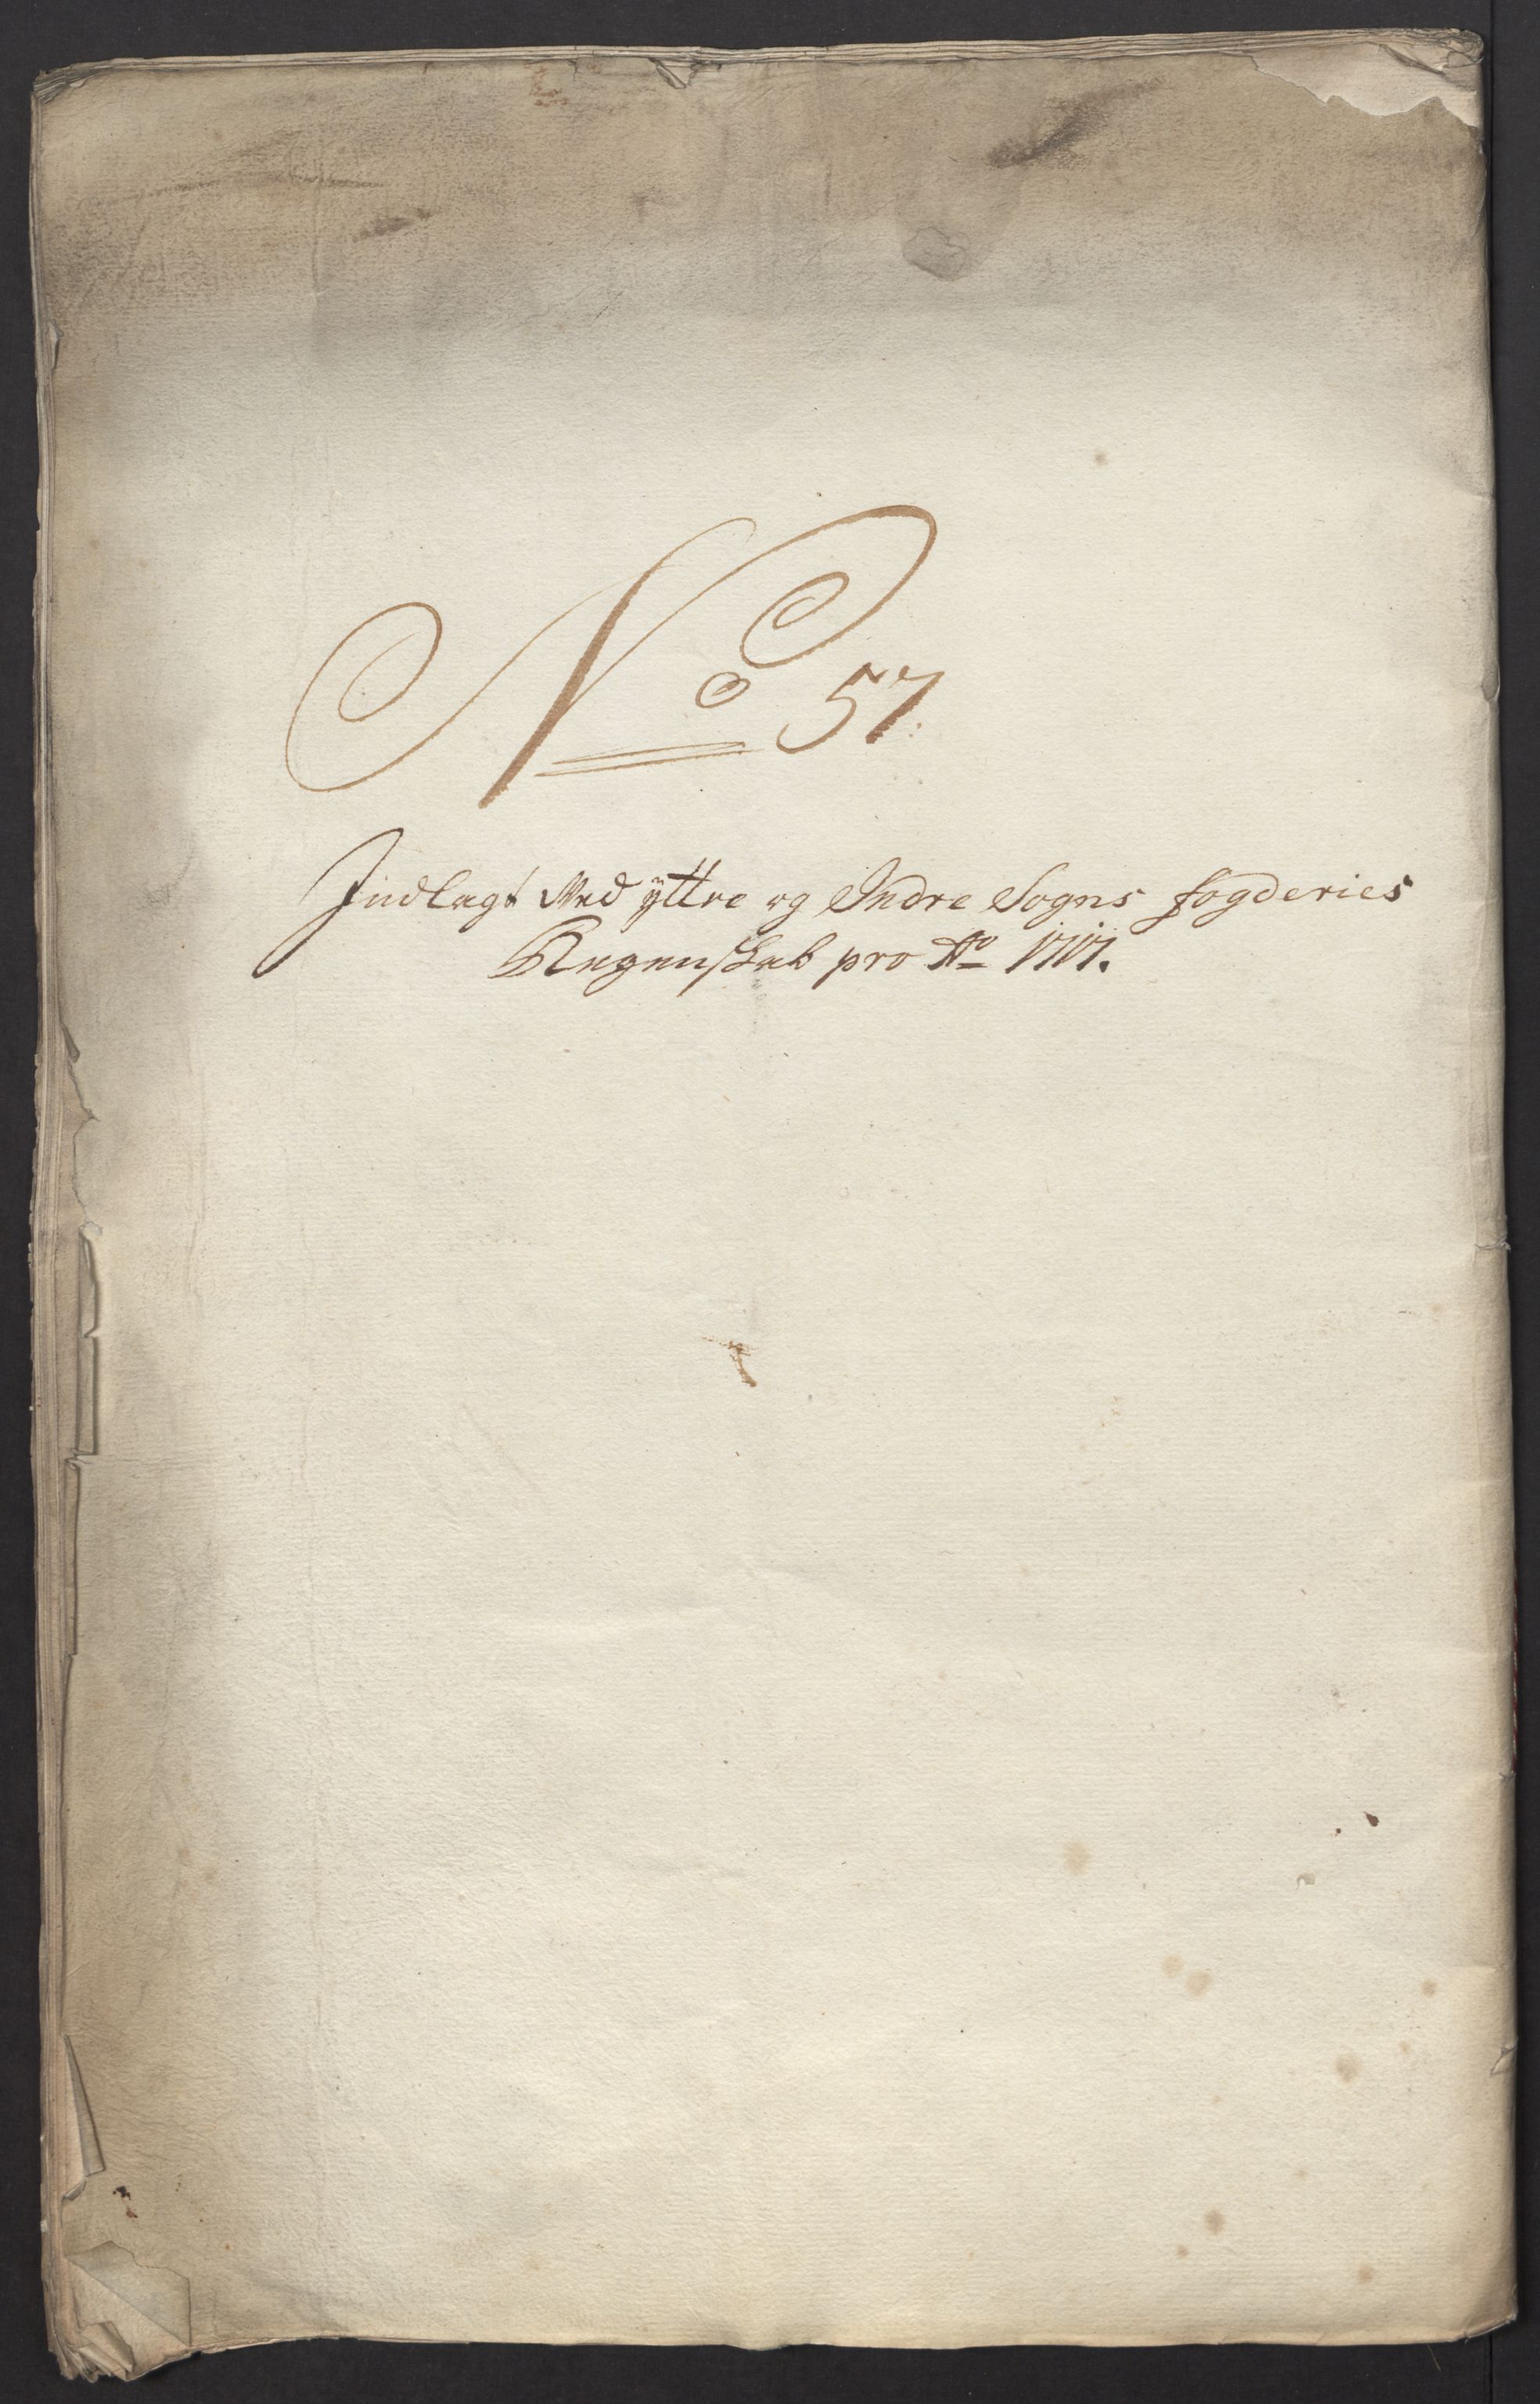 No 57
Indlagt Med ÿttre og Indre Sogns fogderies
Regenskab pro Ao 1717.